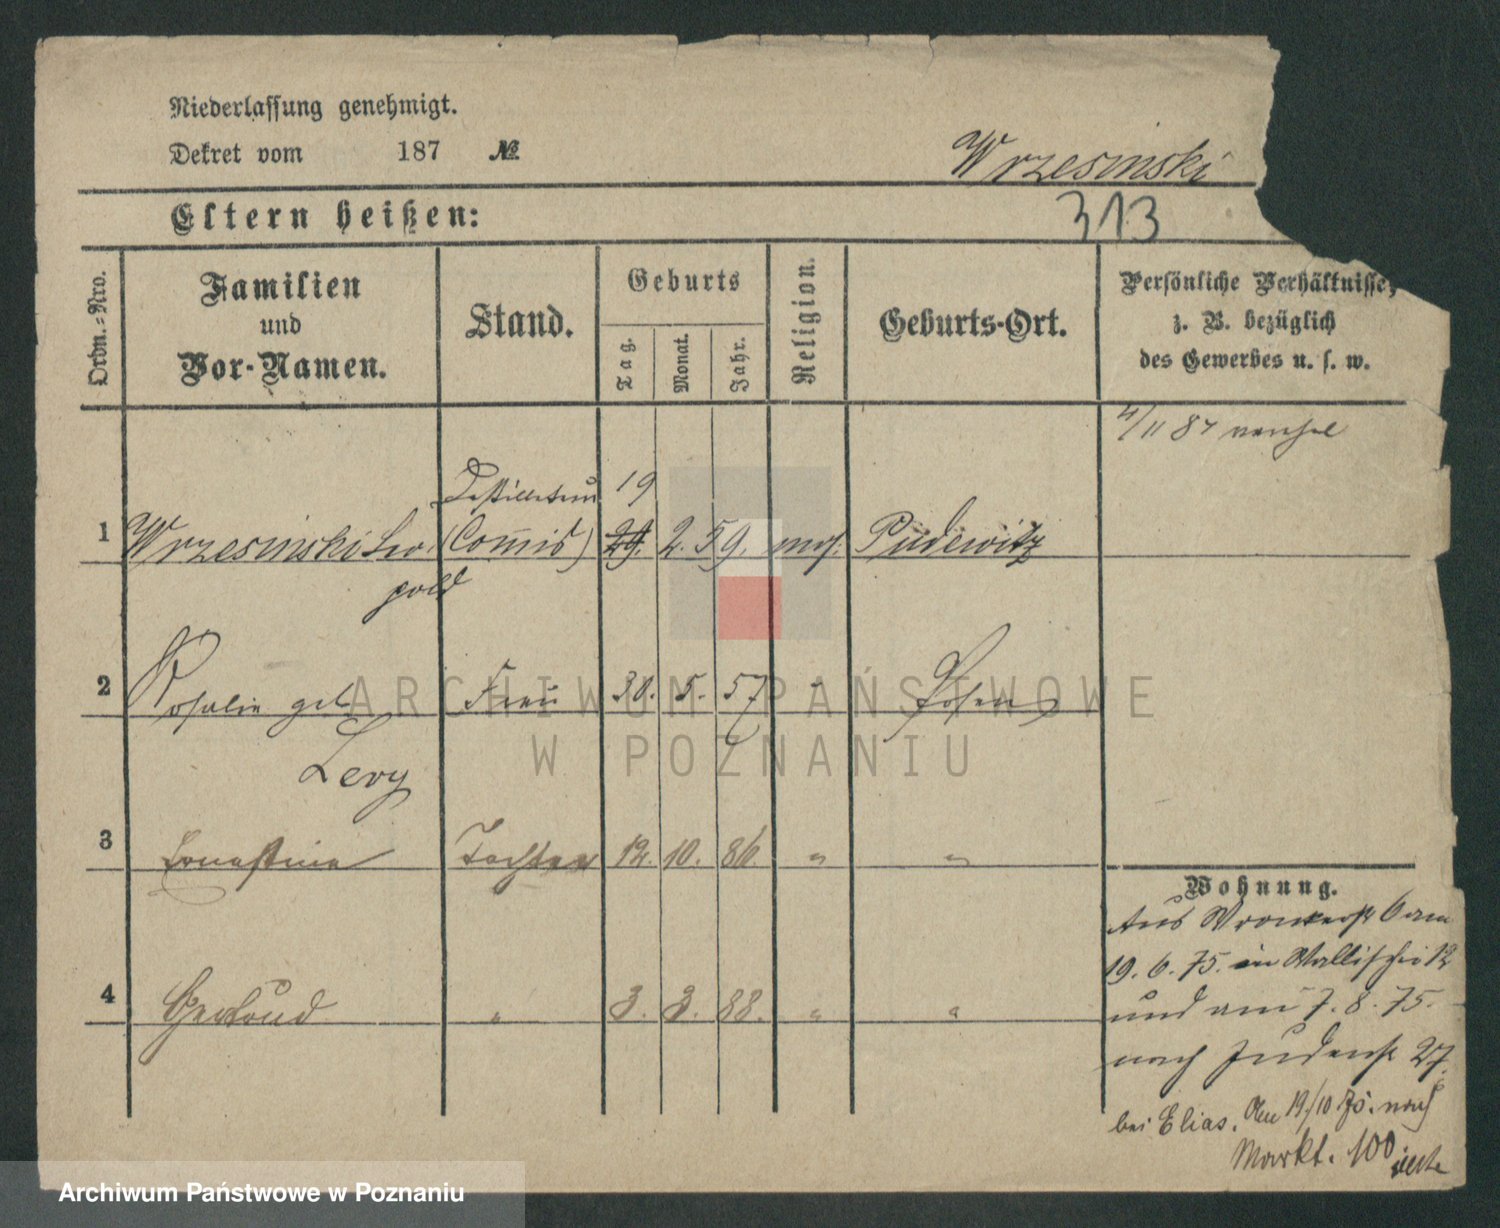 Niederlassung genehmigt.
Dekret vom 187 №
Wrzesinski
Eltern heißen:
313
Ordn.-Nro.
Familien
und
Vor-Namen.
Stand.
Geburts
Tag.
Monat.
Jahr.
Religion.
Geburts-Ort.
Persönliche Verhältnisse,
z. B. bezüglich
des Gewerbes u. s. w.
4/11 87
Destillateur 19
1 Wrzesinski Leo- (Commis) 29. 2. 59. mos. Pudewitz
pold
2 Rosalie geb Frau 30. 5. 57 " Posen
Levy
3 Ernestine Tochter 12. 10. 86 " "
4 Gertrud " 3. 3. 88. " "
Wohnung.
Aus Wronkerstr 6 am
19. 6. 75. in Wallischei 12
und am 7. 8. 75.
nach Judenstr 27.
bei Elias. Am 19/10 75. nach
Markt. 100
ARCHIWUM PAŃSTWOWE
W POZNANIU
Archiwum Państwowe w Poznaniu